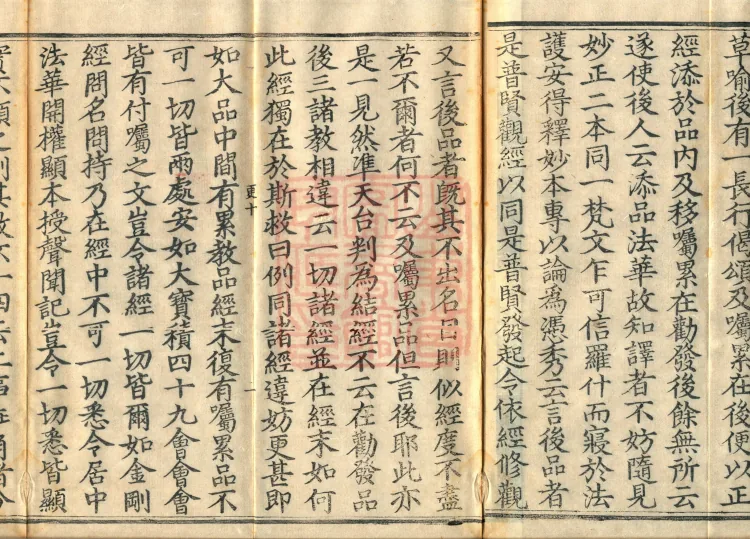 草喻後有一長行偈頌及囑累在後便以正
經添於品內及移囑累在勸發後餘無所云
遂使後人云添品法華故知譯者不妨隨見
妙正二本同一梵文乍可信羅什而寢於法
護安得釋妙本專以論為憑秀云言後品者
是普賢觀經以同是普賢發起令依經修觀
又言後品者既其不出名目則似經度不盡
若不爾者何不云及囑累品但言後耶此亦
是一見然準天台判為結經不云在勸發品
後三諸教相違云一切諸經並在經末如何
此經獨在於斯救曰例同諸經違妨更甚即
更十
一
如大品中間有累教品經末復有囑累品不
可一切皆兩處安如大寶積四十九會會會
皆有付囑之文豈令諸經一切皆爾如金剛
經問名問持乃在經中不可一切悉令居中
法華開權顯本授聲聞記豈令一切悉皆顯